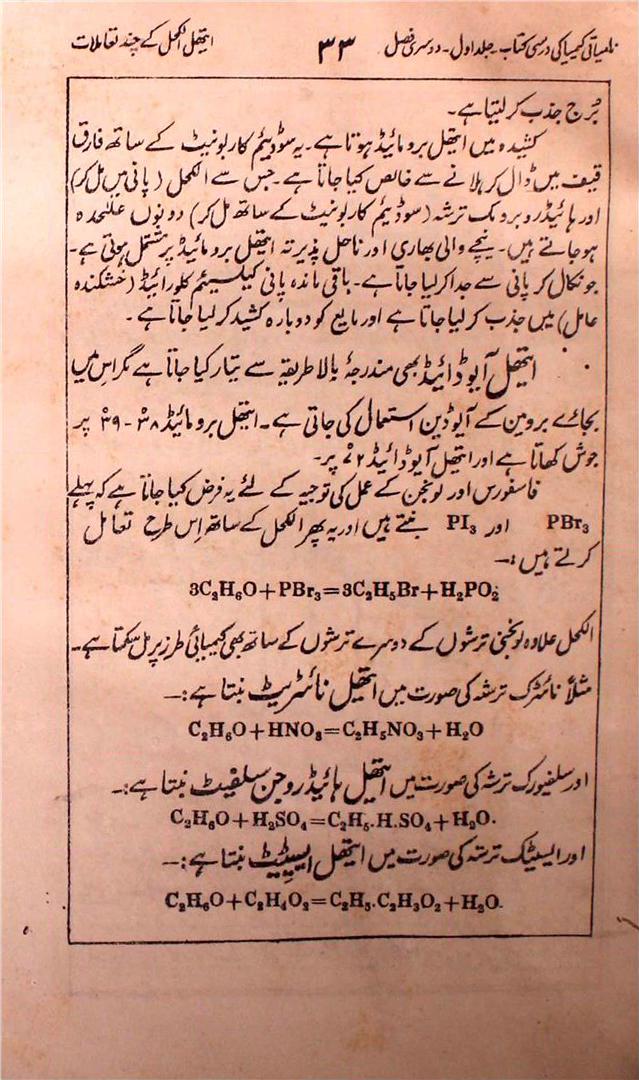 نامیاتی کیمیا کی درسی کتاب ۔ جلد اول ۔ دوسری فصل ۳۳ ایتھل الکحل کے چند تعاملات
بُرج جذب کر لیتا ہے۔
کشیدہ میں ایتھل برومائیڈ ہوتا ہے۔ یہ سوڈیئم کاربونیٹ کے ساتھ فارق
قیف میں ڈال کر ہلانے سے خالص کیا جاتا ہے۔ جس سے الکحل (پانی میں مل کر)
اور ہائیڈرو برومک ترشہ (سوڈیئم کاربونیٹ کے ساتھ مل کر) دونوں علٰحدہ
ہو جاتے ہیں۔ نیچے والی بھاری اور ناحل پذیر تہ ایتھل برومائیڈ پر مشتمل ہوتی ہے۔
جو نکال کر پانی سے جدا کر لیا جاتا ہے۔ باقی ماندہ پانی کیلسیئم کلورائیڈ (خشکندہ
عامل) میں جذب کر لیا جاتا ہے اور مایع کو دوبارہ کشید کر لیا جاتا ہے ۔
ایتھل آیوڈائیڈ بھی مندرجۂ بالا طریقہ سے تیار کیا جاتا ہے مگر اس میں
بجائے برومین کے آیوڈین استعمال کی جاتی ہے۔ ایتھل برومائیڈ ۳۸°-۳۹° پر
جوش کھاتا ہے اور ایتھل آیوڈائیڈ ۷۲° پر۔
فاسفورس اور لونجن کے عمل کی توجیہ کے لئے یہ فرض کیا جاتا ہے کہ پہلے
PBr₃ اور PI₃ بنتے ہیں اور یہ پھر الکحل کے ساتھ اِس طرح تعامل
کرتے ہیں :۔
3C₂H₆O+PBr₃=3C₂H₅Br+H₂PO₂
الکحل علاوہ لونجنی ترشوں کے دوسرے ترشوں کے ساتھ بھی کیمیائی طرز پر مل سکتا ہے۔
مثلاً نائٹرک ترشہ کی صورت میں ایتھل نائٹریٹ بنتا ہے :۔
C₂H₆O+HNO₃=C₂H₅NO₃+H₂O
اور سلفیورک ترشہ کی صورت میں ایتھل ہائیڈروجن سلفیٹ بنتا ہے :۔
C₂H₆O+H₂SO₄=C₂H₅.H.SO₄+H₂O.
اور ایسیٹک ترشہ کی صورت میں ایتھل ایسیٹیٹ بنتا ہے :۔
C₂H₆O+C₂H₄O₂=C₂H₅.C₂H₃O₂+H₂O.